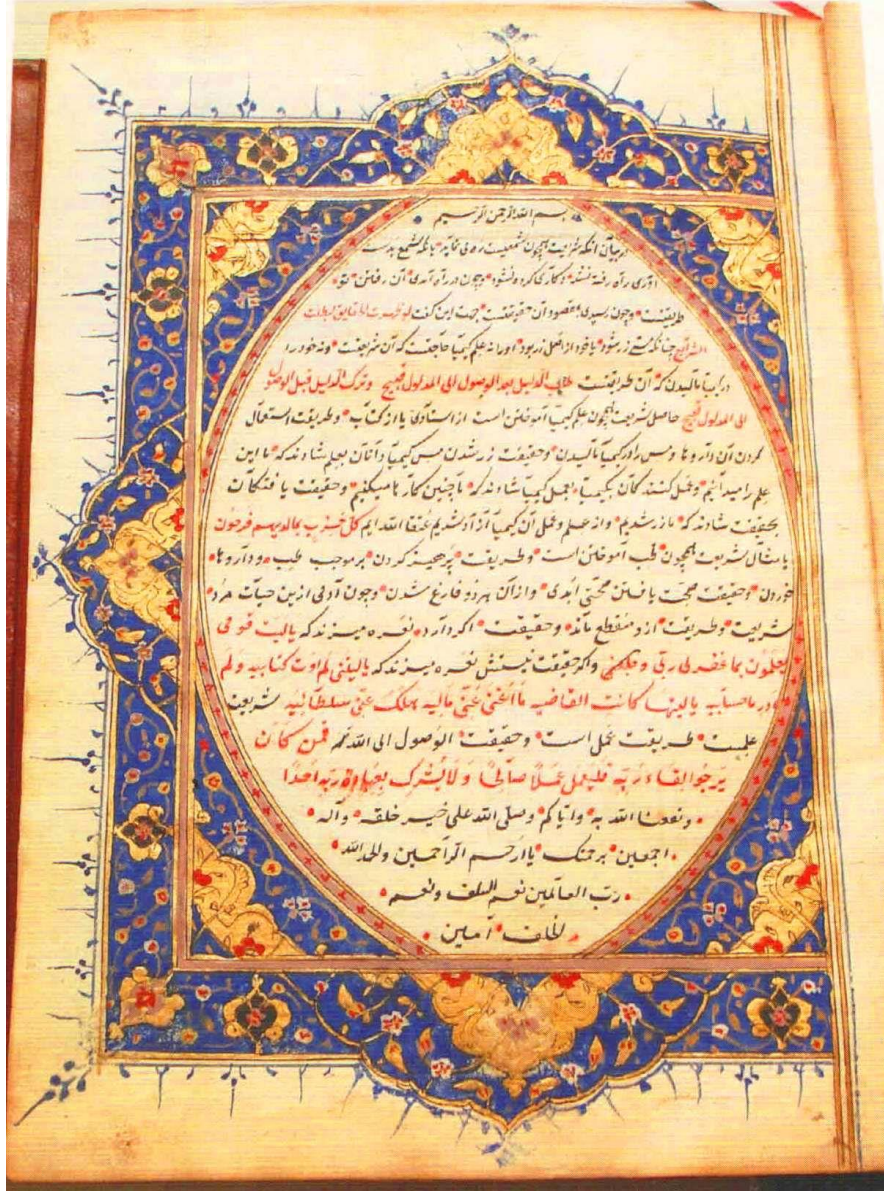 بسم الله الرحمن الرحیم
در بیان آنکه شریعت همچون شمعیست ره می نماید بی آنکه شمع بدست
آوری راه رفته نشود و کاری کرده نشود و چون در راه آمدی آن رفتن تو
طریقتست وچون رسیدی بمقصود آن حقیقتست جهت این گفت لو ظهرت الحقایق بطلت
الشرایع چنانکه مس زر شود یا خود از اصل زر بود او را نه علم کیمیا حاجتست که آن شریعتست ونه خود را
در کیمیا مالیدن که آن طریقتست طلب الدلیل بعد الوصول الی المدلول قبیح وترک الدلیل قبل الوصول
الی المدلول قبیح حاصل شریعت همچون علم کیمیا آموختن است از استادی یا از کتاب وطریقت استعمال
کردن آن داروها ومس را در کیمیا مالیدن وحقیقت زر شدن مس کیمیا دانان بعلم شادند که ما این
علم را میدانیم وعمل کنندکان بکیمیا بعمل کیمیا شادند که ما چنین کارها میکنیم وحقیقت یافتکان
بحقیقت شادند که ما زر شدیم واز علم وعمل آن کیمیا آزاد شدیم عتقا الله ایم کل حزب بمالدیهم فرحون
یا مثال شریعت همچون طب آموختن است وطریقت پرهیز کردن بر موجب طب وداروها
خوردن وحقیقت صحت یافتن ابدی واز آن هر دو فارغ شدن وچون آدمی ازین حیات مرد
شریعت وطریقت ازو منقطع ماند وحقیقت اکر دارد نعره میزند که یالیت قومی
یعلمون بما غفر لی ربی واکر حقیقت نیستش نعره میزند که یالیتنی لم اوت کتابیه ولم
ادر ماحسابیه یالیتها کانت القاضیه ما اغنی عنی مالیه هلک عنی سلطانیه شریعت
علمست طریقت عمل است وحقیقت الوصول الی الله فمن کان
یرجوا لقاء ربه فلیعمل عملا صالحا ولا یشرک بعبادة ربه احدا
ونفعنا الله به وایاکم وصلی الله علی خیر خلقه وآله
اجمعین برحمتک یا ارحم الراحمین والحمدالله
رب العالمین نعم السلف ونعم
الخلف آمین